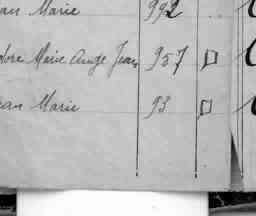 an Marie 992
dore Marie Ange Jean 957
ean Marie 93